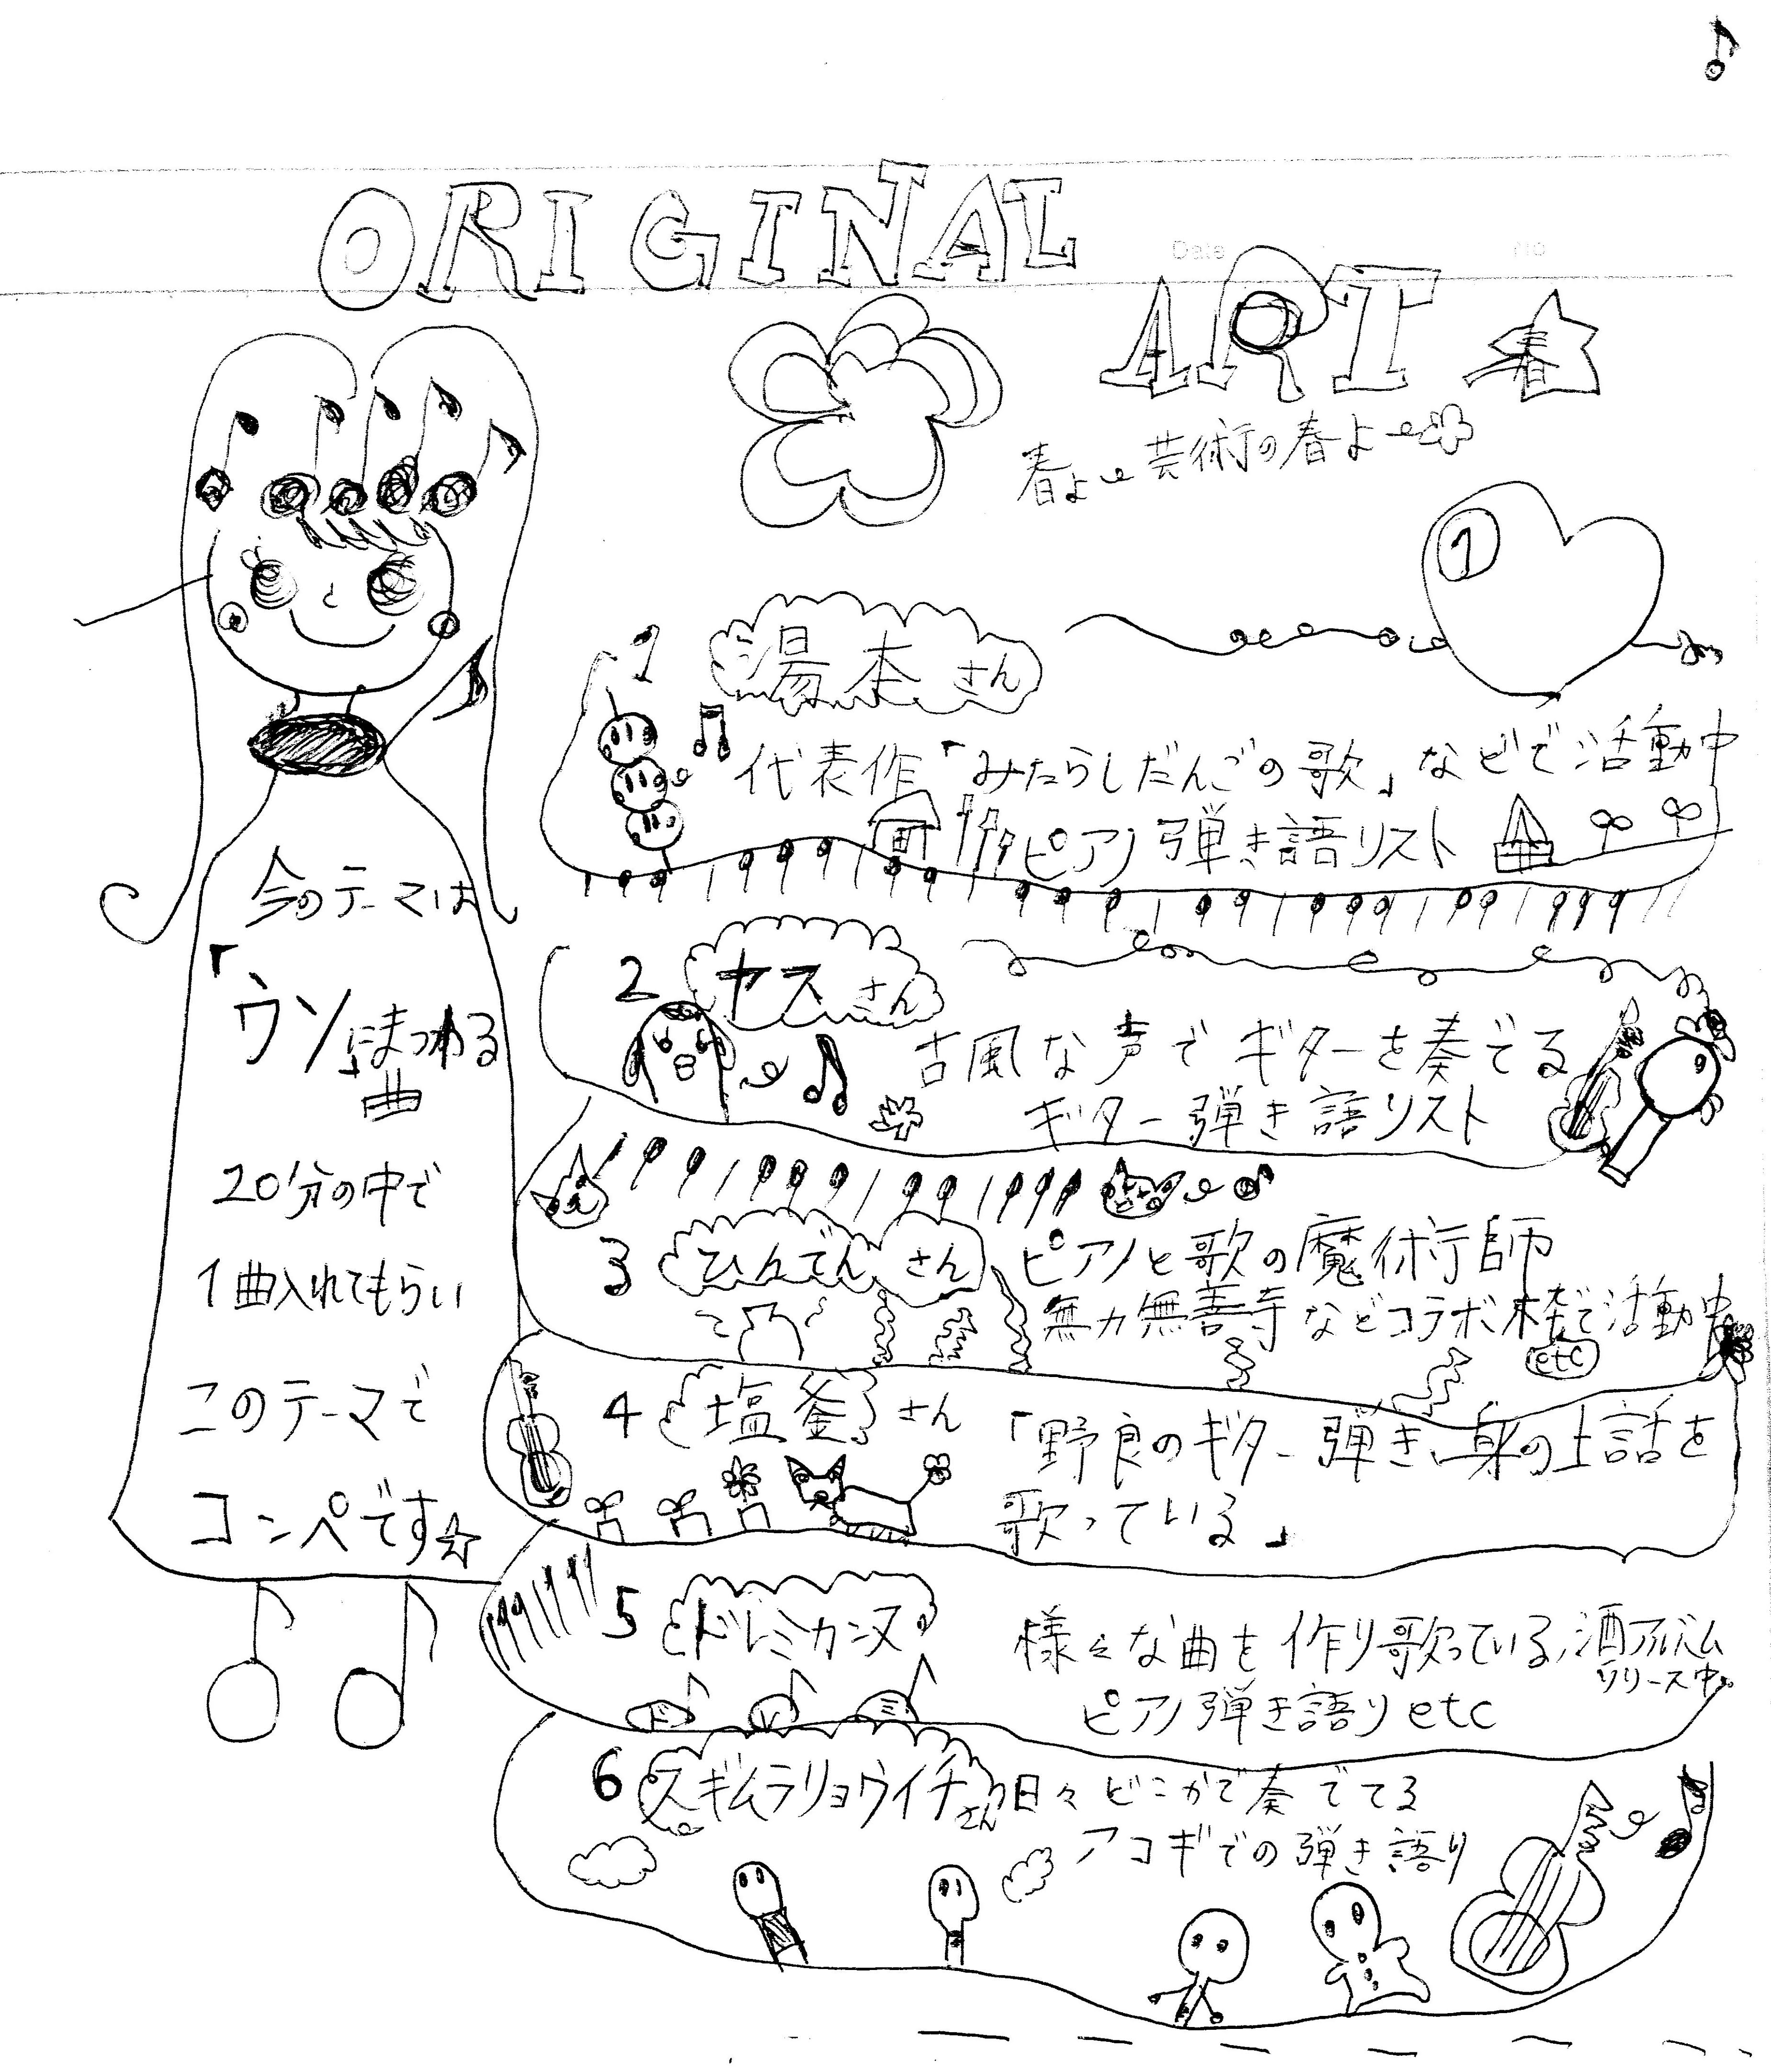 ORIGINAL
Date
No
ART 春
春よ 芸術の春よ
1
1 湯本さん
代表作「みたらしだんごの歌」などで活動中
ピアノ弾き語リスト
今のテーマは
「ウソ」にまつわる
曲
20分の中で
1曲入れてもらい
このテーマで
コンペです☆
2 ヤスさん
古風な声でギターを奏でる
ギター弾き語リスト
3 ひんでんさん
ピアノと歌の魔術師
無力無善寺などコラボ 様々で活動中
etc
4 塩釜さん
「野良のギター弾き、身の上話を
歌っている」
5 ドレミカンヌ
様々な曲を作り歌っている、酒アルバム
リリース中。
ピアノ弾き語り etc
6 スギムラリョウイチさん
日々どこかで奏でてる
アコギでの弾き語り